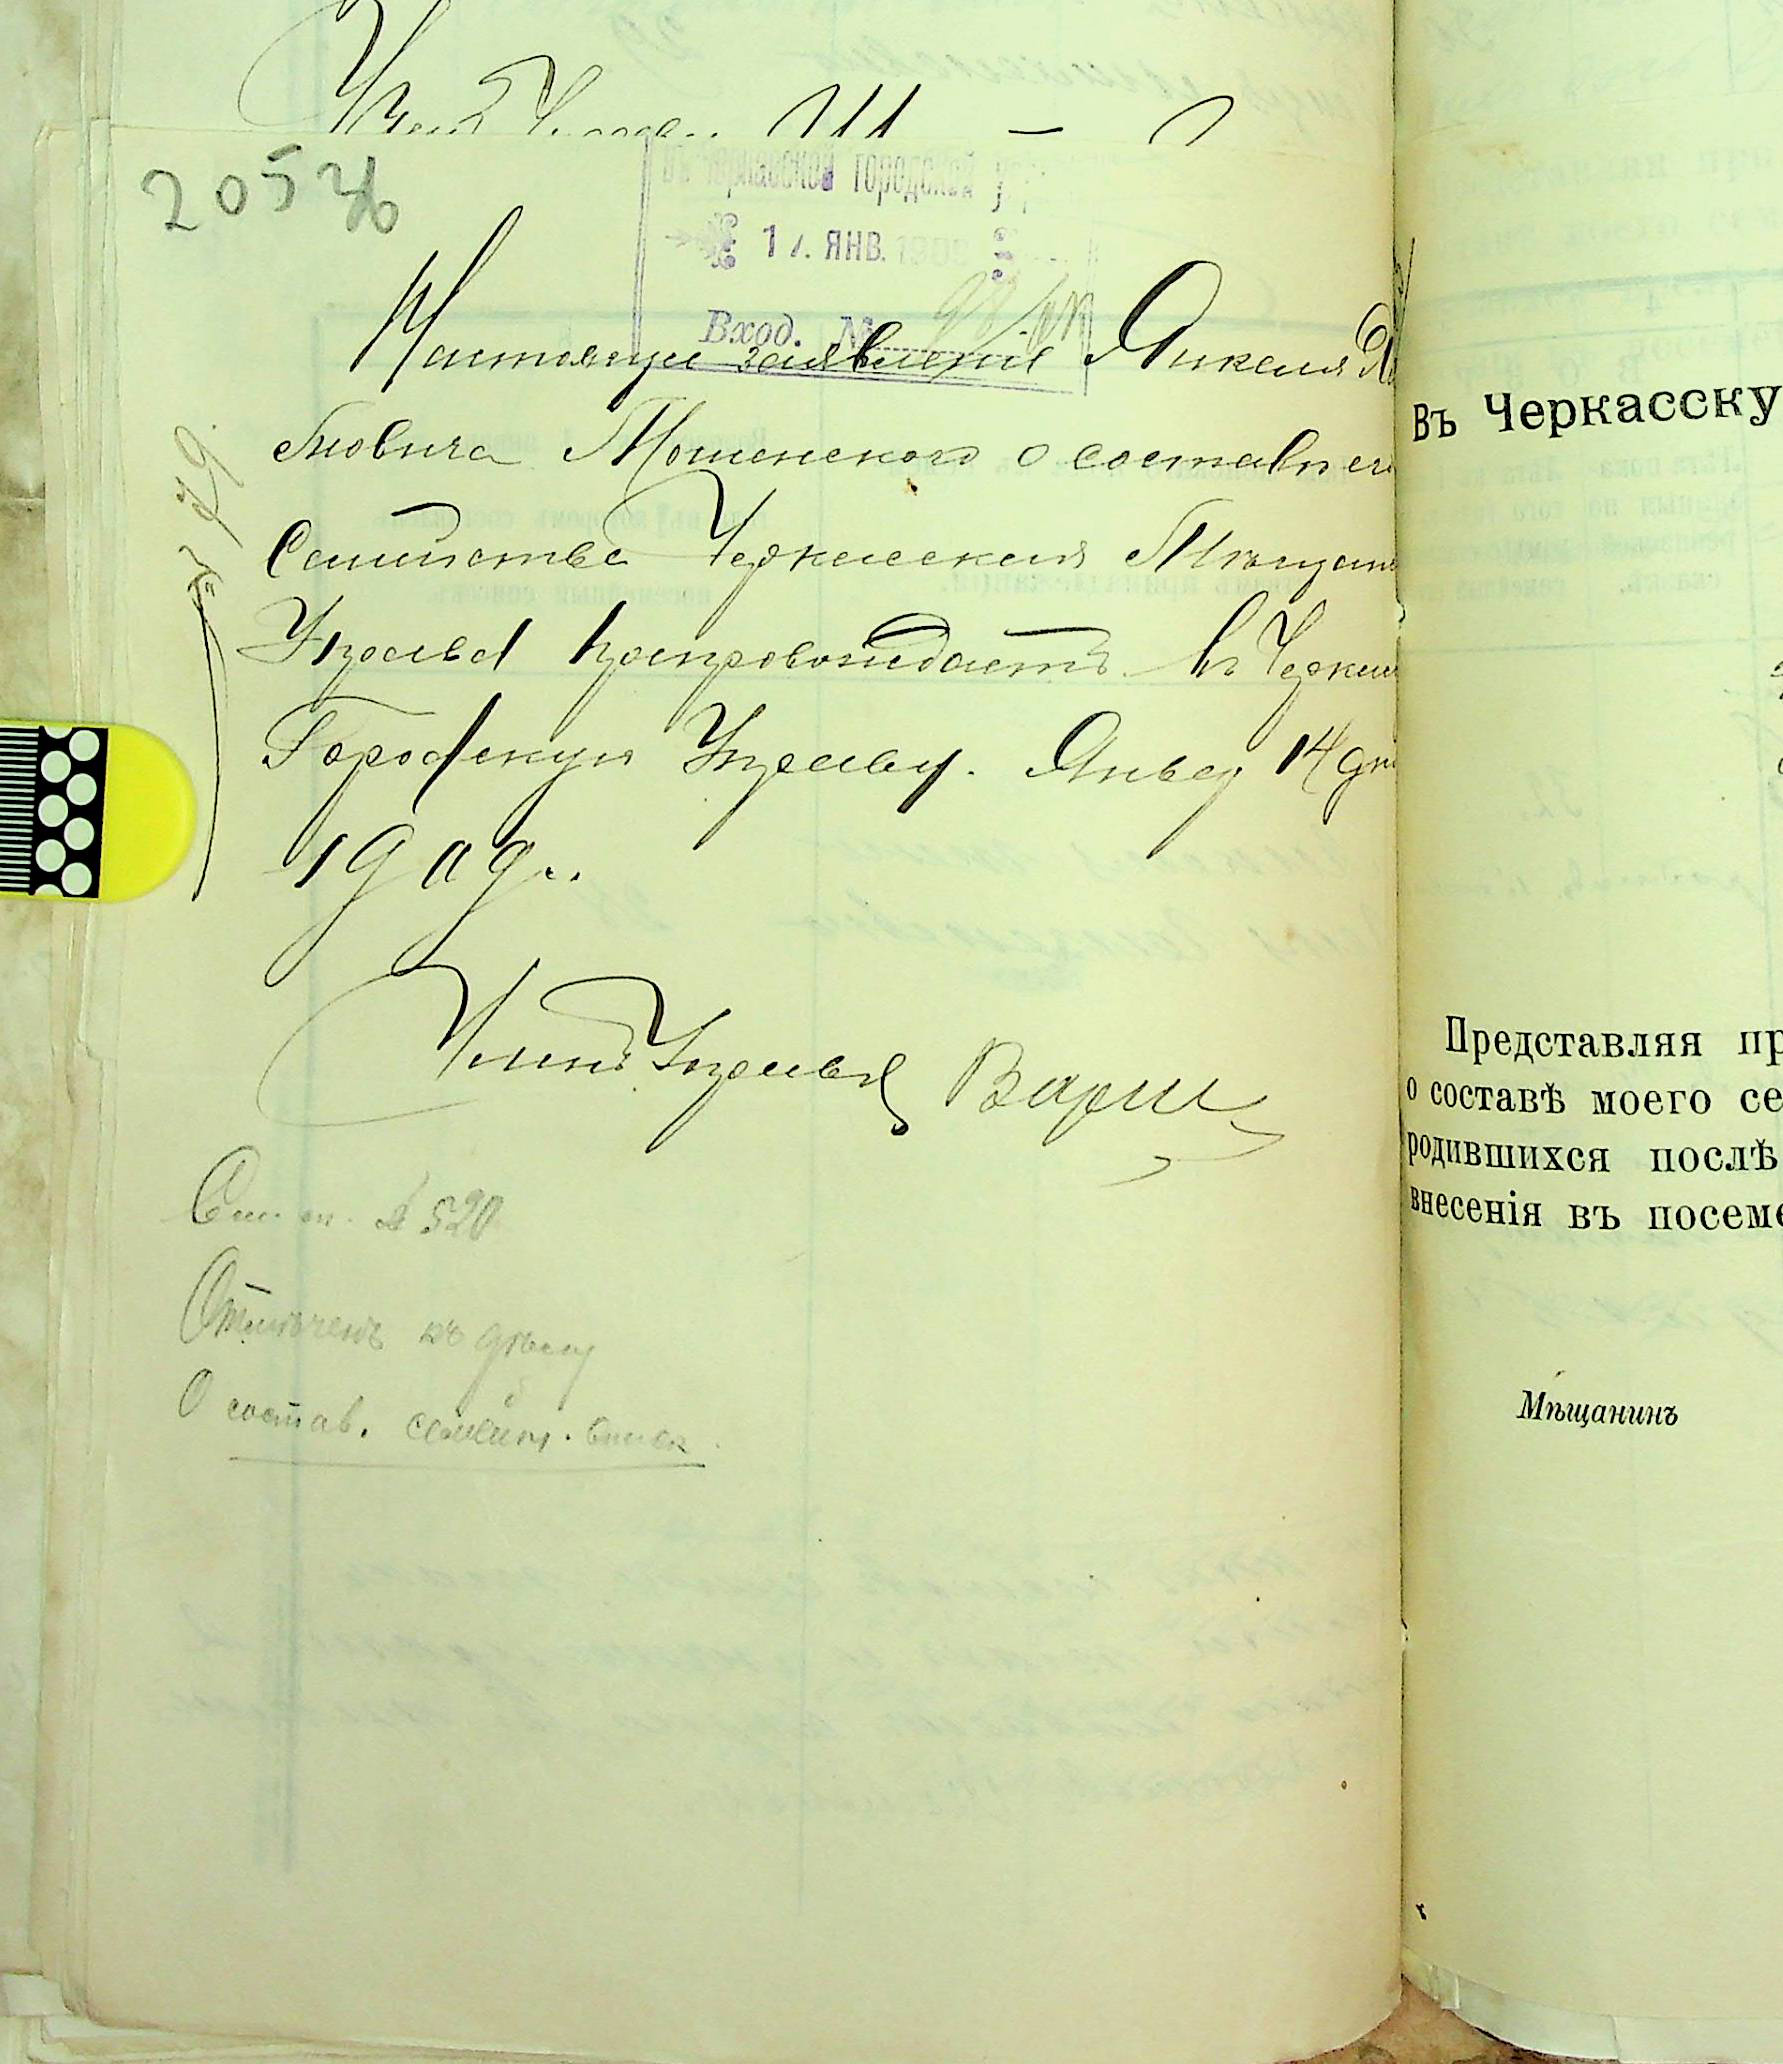 205 об
Въ Черкасской городской
17. ЯНВ. 190
Вход. №
Настоящее заявление Янкеля
бновича Мошенского о составе его
Семейства Черкасская Мещан
Управа препровождаетъ въ Черкас
Городскую Управу. Январ 14 дня
1909 г.
Членъ Управы
№ 49.
См. сп. № 520
Отмѣченъ къ дѣлу
О состав. семейн. списк.
Въ Черкасску
Представляя пр
о составѣ моего се
родившихся послѣ
внесенія въ посеме
Мѣщанинъ